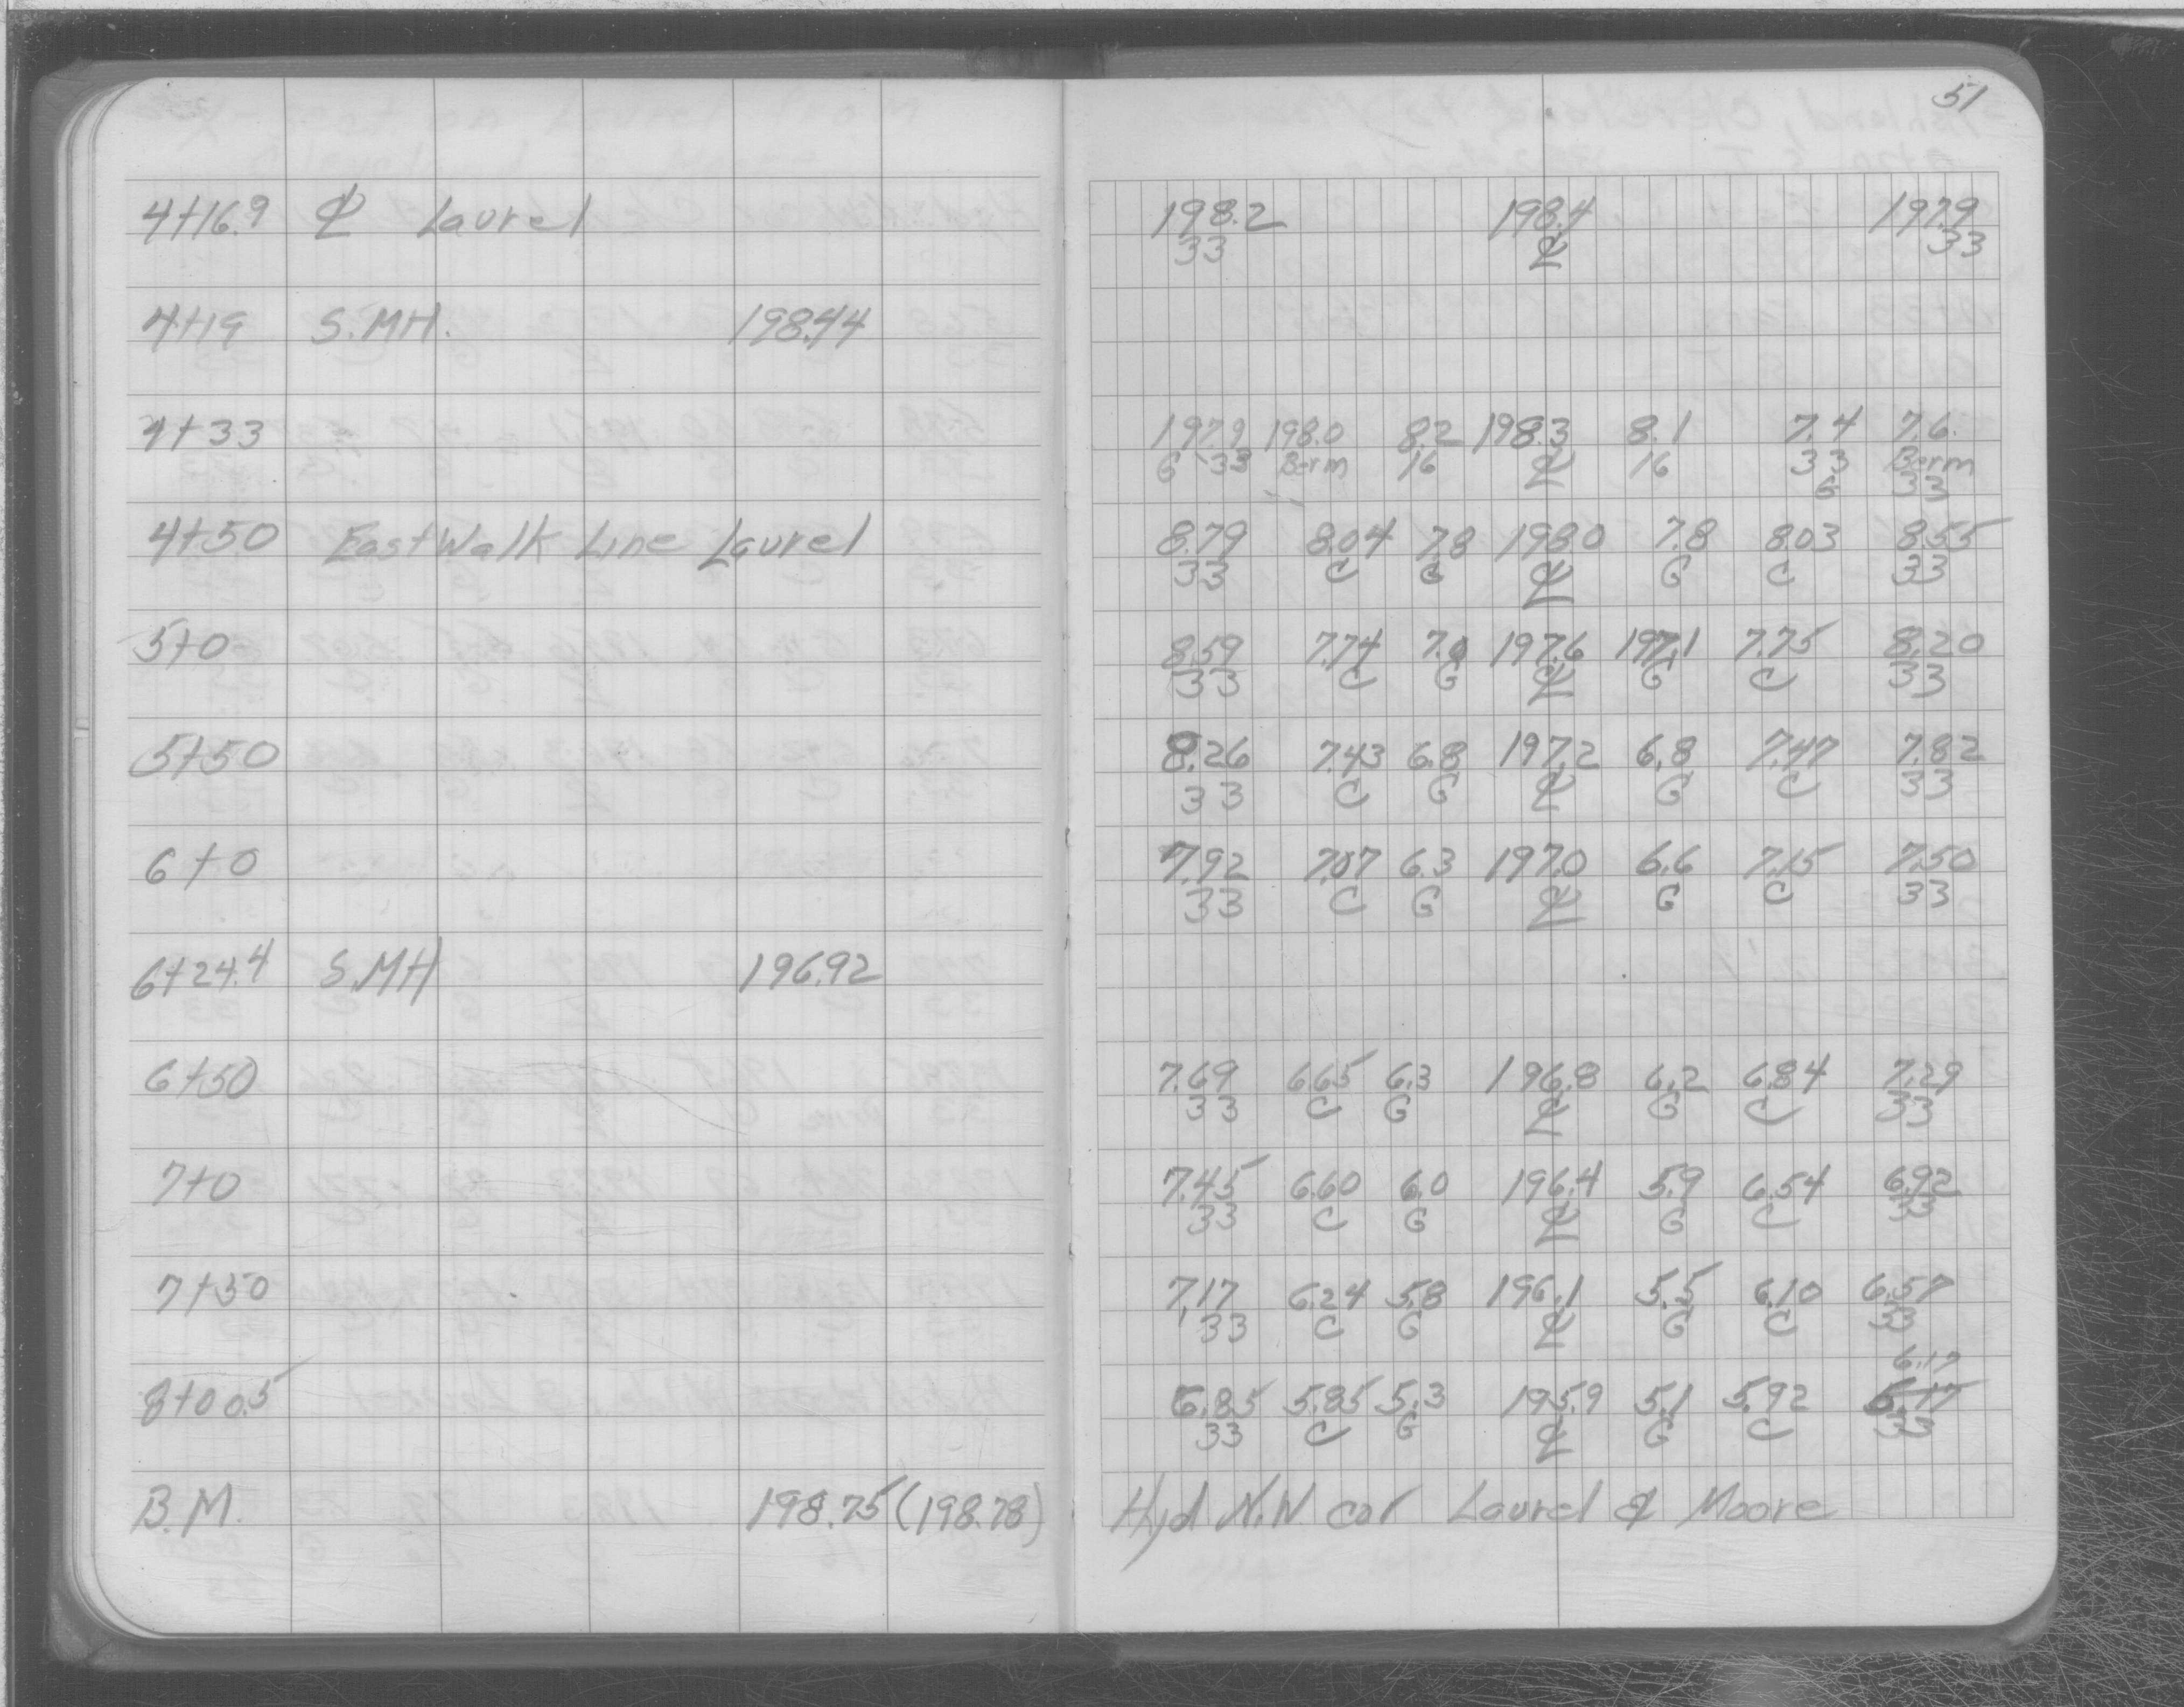 51
4+16.9 ℄ Laurel 198.2 198.4 197.9
33 ℄ 33
4+19 S.MH. 198.44
4+33 197.9 198.0 8.2 198.3 8.1 7.4 7.6
G 33 Berm 16 ℄ 16 33 Berm
G 33
4+50 East Walk Line Laurel 8.79 8.04 7.8 198.0 7.8 8.03 8.55
33 C G ℄ G C 33
5+0 8.59 7.74 7.0 197.6 197.1 7.75 8.20
33 C G ℄ G C 33
5+50 8.26 7.43 6.8 197.2 6.8 7.47 7.82
33 C G ℄ G C 33
6+0 7.92 7.07 6.3 197.0 6.6 7.15 7.50
33 C G ℄ G C 33
6+24.4 S.MH 196.92
6+50 7.69 6.65 6.3 196.8 6.2 6.84 7.29
33 C G ℄ G C 33
7+0 7.45 6.60 6.0 196.4 5.9 6.54 6.92
33 C G ℄ G C 33
7+50 7.17 6.24 5.8 196.1 5.5 6.10 6.57
33 C G ℄ G C 33
6.17
8+00.5 6.85 5.85 5.3 195.9 5.1 5.92 6.17
33 C G ℄ G C 33
B.M. 198.75 (198.78) Hyd N.W cor Laurel & Moore